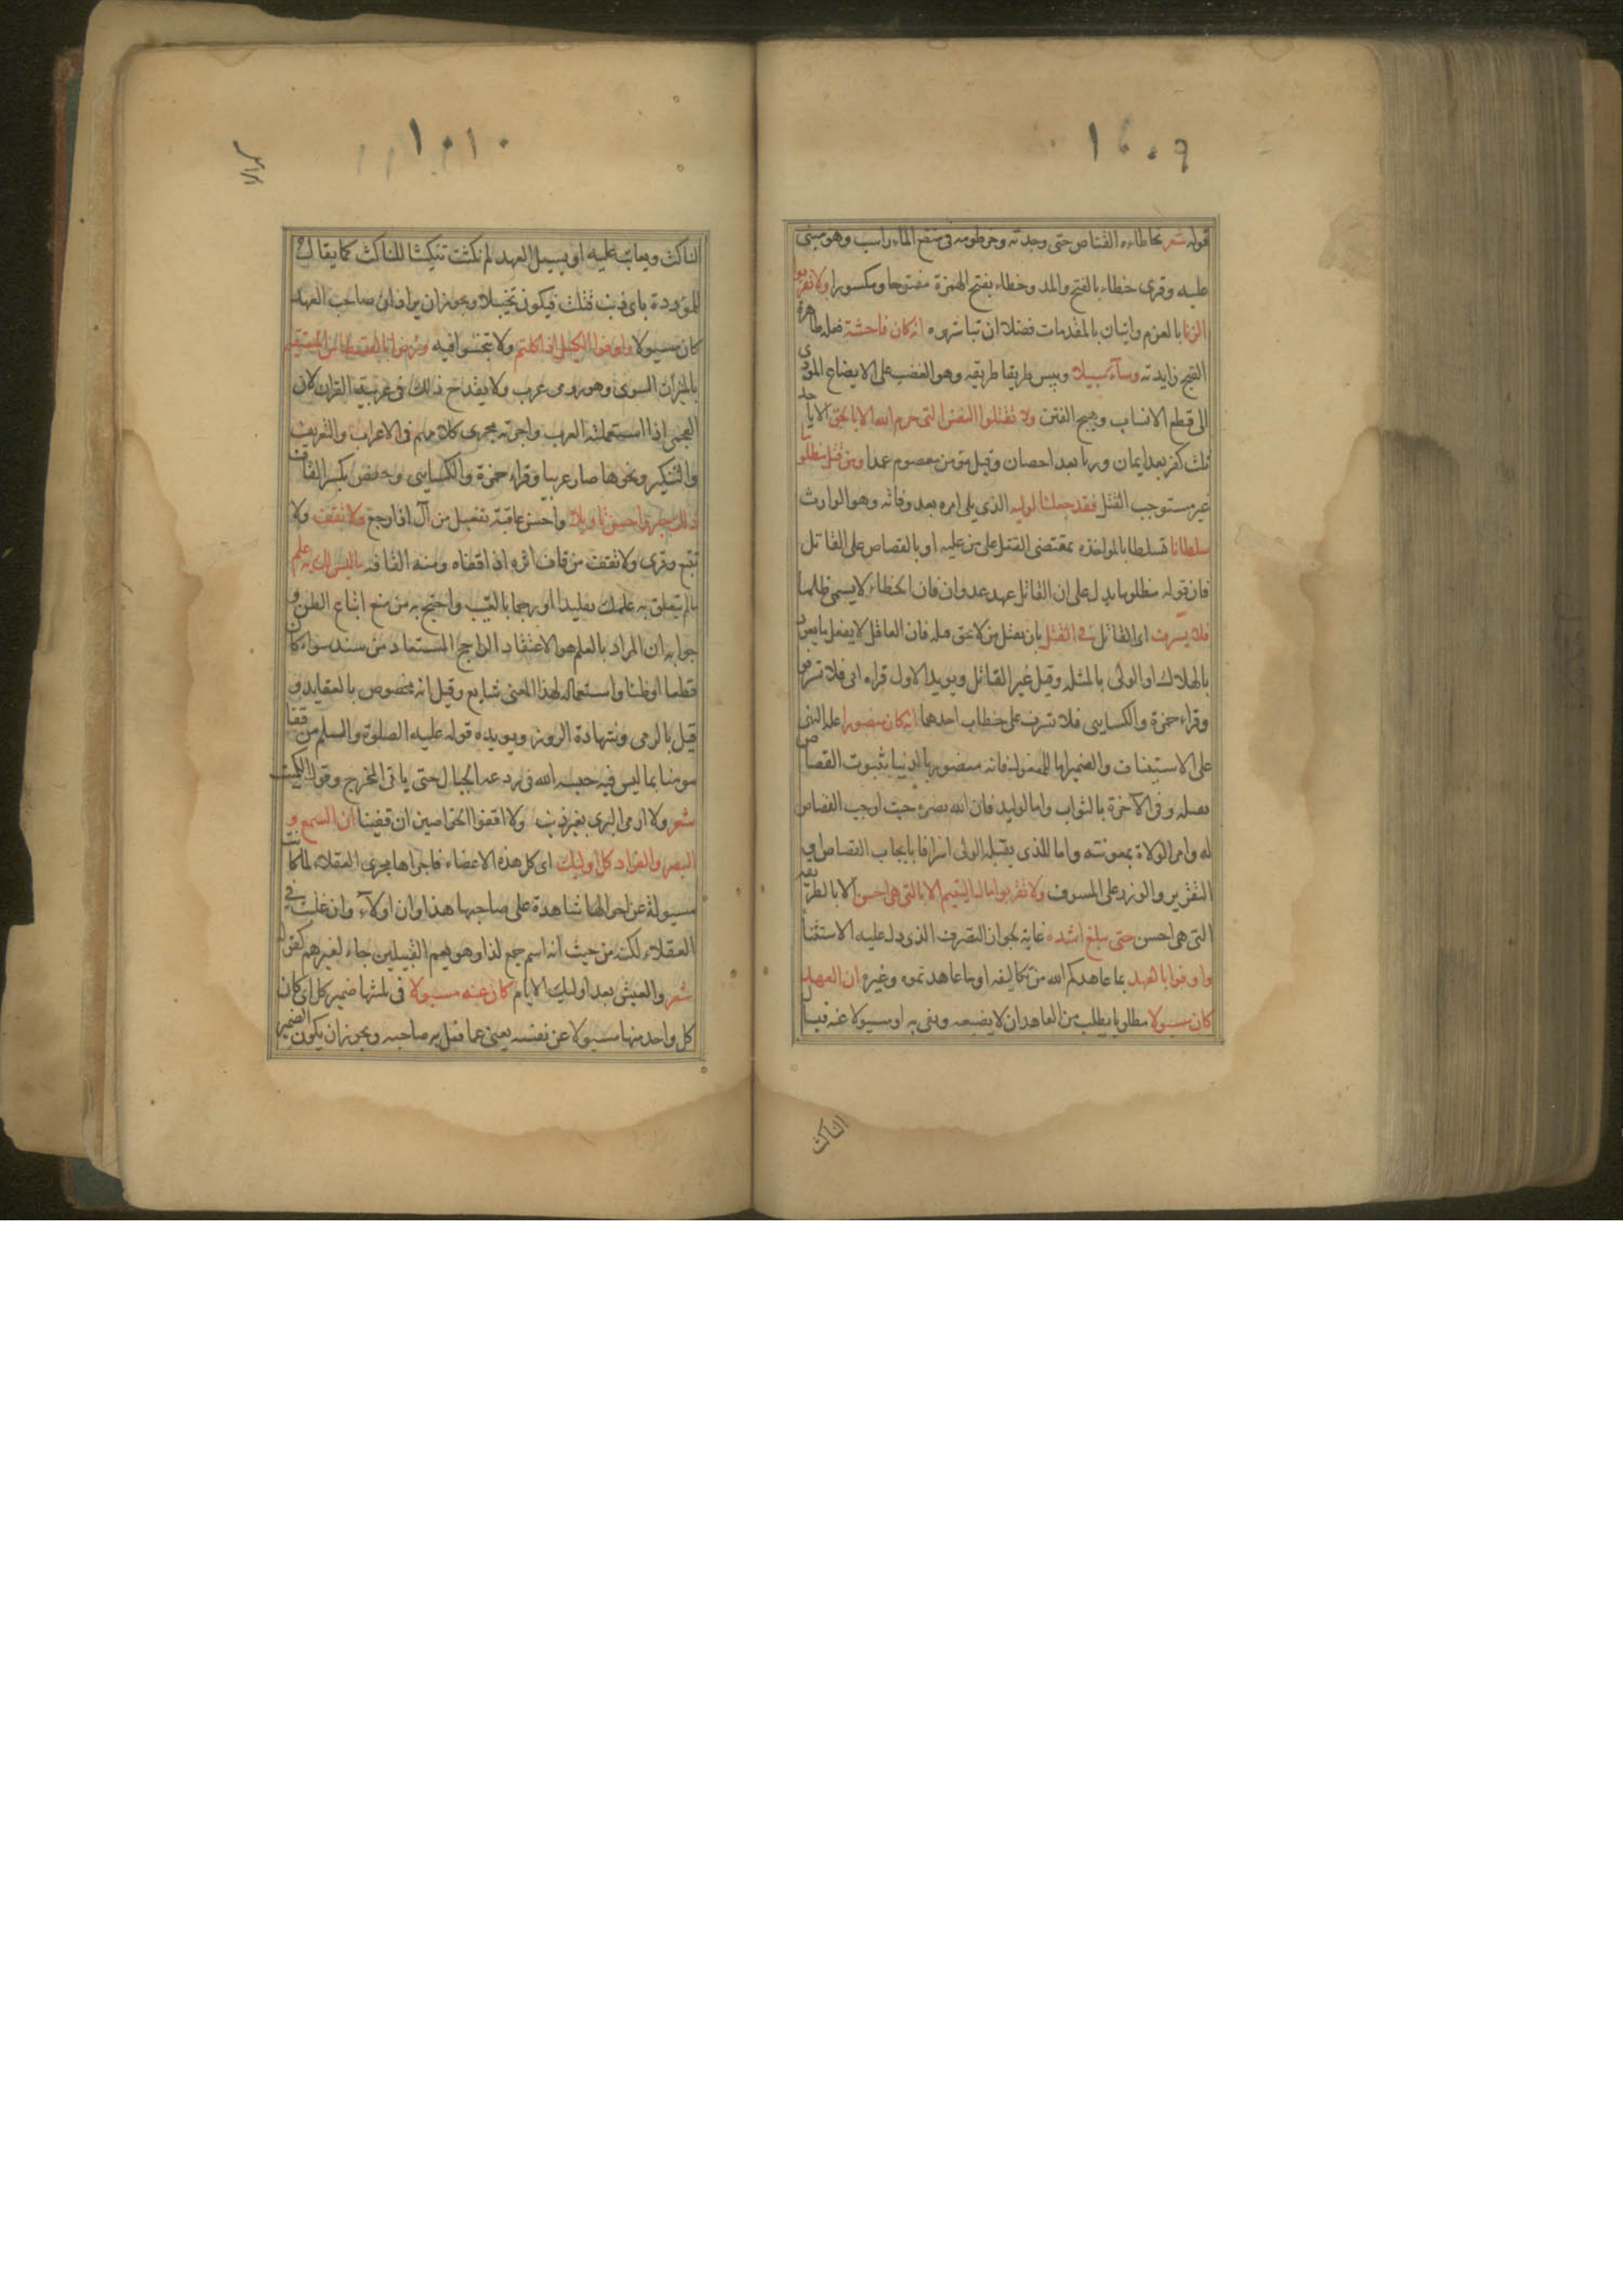 ١٠٠٩
قوله شعر تخاطاه القناص حتى وجدته وخرطومه في منقع الماء راسب وهو مبنى
عليه وقرى خطاء بالفتح والمد وخطاء بفتح الهمزة مفتوحا ومكسورا ولا تقربوا
الزنا بالعزم واتيان بالمقدمات فضلا ان تباشروه انه كان فاحشة فعلة ظاهرة
القبح زايدته وساء سبيلا وبيس طريقا طريقه وهو الغضب على الابضاع المودى
الى قطع الانساب وهيج الفتن ولا تقتلوا النفس التى حرم الله الا بالحق الا باحد
ثلث كفر بعد ايمان وزنا بعد احصان وقتل مومن معصوم عمدا ومن قتل مظلوما
غير مستوجب القتل فقد جعلنا لوليه الذى يلى امره بعد وفاته وهو الوارث
سلطانا تسلطا بالمواخذه بمقتضى القتل على من عليه او بالقصاص على القاتل
فان قوله مظلوما يدل على ان القاتل عهد عدوان فان الخطاء لا يسمى ظلما
فلا يسرف اى القاتل فى القتل بان يقتل من لا يحق قتله فان العاقل لا يفعل ما يعود
بالهلاك او الولى بالمثله وقيل غير القاتل ويويد الاول قراءه ابى فلا تسرفوا
وقراء حمزة والكسايى فلا تسرف على خطاب احدهما انه كان منصورا علة النهى
على الاستيناف والضمير اما للمقتول فانه منصور بالدنيا بثبوت القصاص
بقتله وفى الآخرة بالثواب واما لوليه فان الله نصره حيث اوجب القصاص
له وامر الولاة بمعونته واما للذى يقتله الولى اسرافا بايجاب القصاص او
التقزير والوزر على المسرف ولا تقربوا مال اليتيم الا بالتى هى احسن الا بالطريقه
التى هى احسن حتى يبلغ اشده غاية لجواز التصرف الذى دل عليه الاستثنا
واوفوا بالعهد بما عاهدكم الله من تكاليفه او ما عاهدتموه وغيره ان العهد
كان مسيولا مطلوبا يطلب من المعاهد ان لا يضيعه ويفى به او مسيولا عنه فيسأل
الناكث
١٠١٠
الناكث ويعاتب عليه او يسيل العهد لم نكثت تنكيثا للناكث كما يقال
للمؤودة باى ذنب قتلت فيكون تخييلا ويجوز ان يراد ان صاحب العهد
كان مسيولا واوفوا الكيل اذا كلتم ولا تبخسوا فيه وزنوا بالقسطاس المستقيم
بالميزان السوى وهو رومى عرب ولا يقدح ذلك فى عربية القران لان
العجمى اذا استعملته العرب واجرته مجرى كلامهم فى الاعراب والتعريف
والتنكير ونحوها صار عربيا وقراء حمزة والكسايى وحفص بكسر القاف
ذلك خير واحسن تاويلا واحسن عاقبة تفعيل من آل اذا رجع ولا تقف ولا
تتبع وقرى ولا تقف من قاف اثره اذا قفاه ومنه القافه ما ليس لك به علم
ما لم يتعلق به علمك تقليدا او رجما بالغيب واحتج به من منع اتباع الظن و
جوابه ان المراد بالعلم هو الاعتقاد الراجح المستفاد من سند سواء كان
قطعا او ظنا واستعماله لهذا المعنى شايع وقيل انه مخصوص بالعقايد و
قيل بالرمى وشهادة الزور ويويده قوله عليه الصلوة والسلم من قفا
مومنا بما ليس فيه حبسه الله فى ردغه الخبال حتى ياتى المخرج وقول الكميت
شعر ولا ارمى البرى بغير ذنب ولا اقفوا الحواصين ان قفينا ان السمع و
البصر والفواد كل اوليك اى كل هذه الاعضاء فاجراها مجرى العقلاء لما كانت
مسيولة عن احوالها شاهدة على صاحبها هذا وان اولاء وان غلبت فى
العقلاء لكنه من حيث انه اسم جمع لذا وهو يعم القبيلين جاء لغيرهم كقوله
شعر والعيش بعد اوليك الايام كان عنه مسيولا فى ثلثها ضمير كل اى كان
كل واحد منها مسيولا عن نفسه يعنى عما فعل به صاحبه ويجوز ان يكون الضمير